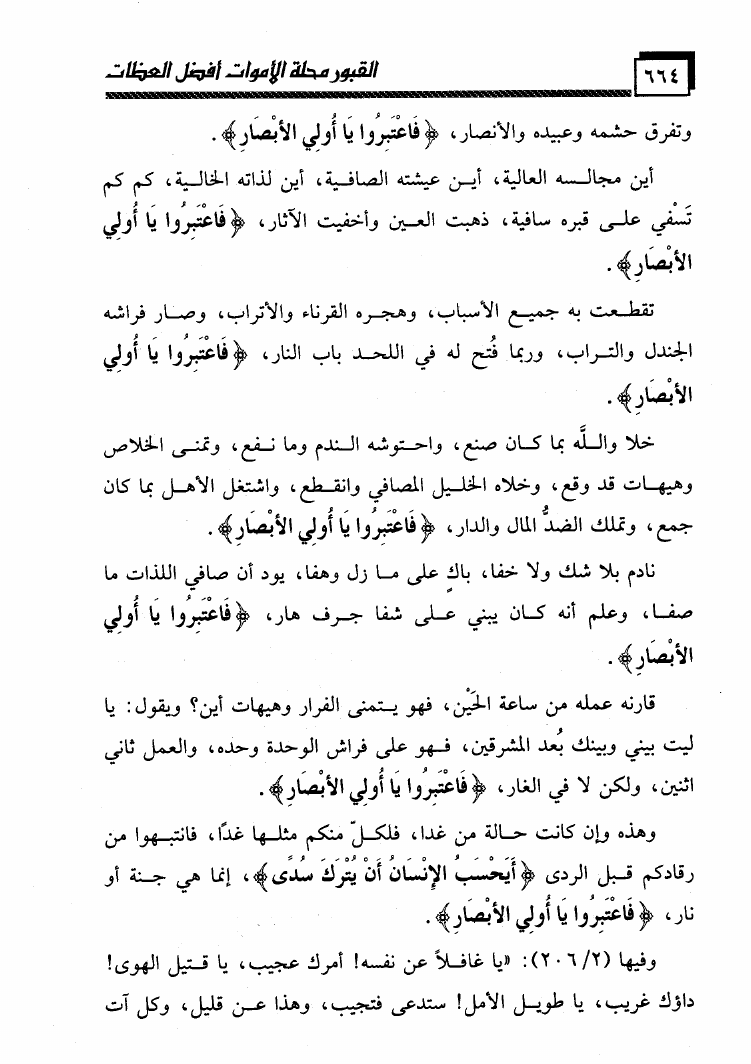 ٦٦٤
القبور محلة الأموات أفضل العظات
وتفرق حشمه وعبيده والأنصار، ﴿فَاعْتَبِرُوا يَا أُولِي الأَبْصَارِ﴾.
أين مجالسه العالية، أيـن عيشته الصافـية، أين لذاته الخالـية، كم كم
تَسْفي علـى قبره سافية، ذهبت العـين وأخفيت الآثار، ﴿فَاعْتَبِرُوا يَا أُولِي
الأَبْصَارِ﴾.
تقطـعت به جميـع الأسباب، وهجـره القرناء والأتراب، وصـار فراشه
الجندل والتـراب، وربما فُتح له في اللحـد باب النار، ﴿فَاعْتَبِرُوا يَا أُولِي
الأَبْصَارِ﴾.
خلا واللَّه بما كـان صنع، واحـتوشه الـندم وما نـفع، وتمنـى الخلاص
وهيهـات قد وقع، وخلاه الخلـيل المصافي وانقـطع، واشتغل الأهـل بما كان
جمع، وتملك الضدُّ المال والدار، ﴿فَاعْتَبِرُوا يَا أُولِي الأَبْصَارِ﴾.
نادم بلا شك ولا خفا، باكٍ على مـا زل وهفا، يود أن صافي اللذات ما
صفـا، وعلم أنه كـان يبني عـلـى شفا جـرف هار، ﴿فَاعْتَبِرُوا يَا أُولِي
الأَبْصَارِ﴾.
قارنه عمله من ساعة الحَيْن، فهو يـتمنى الفرار وهيهات أين؟ ويقول: يا
ليت بيني وبينك بُعد المشرقين، فـهو على فراش الوحدة وحده، والعمل ثاني
اثنين، ولكن لا في الغار، ﴿فَاعْتَبِرُوا يَا أُولِي الأَبْصَارِ﴾.
وهذه وإن كانت حـالة من غدا، فلكـلّ منكم مثلـها غدًا، فانتبـهوا من
رقادكم قـبل الردى ﴿أَيَحْسَبُ الإِنْسَانُ أَنْ يُتْرَكَ سُدًى﴾، إنما هي جـنة أو
نار، ﴿فَاعْتَبِرُوا يَا أُولِي الأَبْصَارِ﴾.
وفيها (٢/ ٢٠٦): «يا غافـلاً عن نفسه! أمرك عجيب، يا قـتيل الهوى!
داؤك غريب، يا طويـل الأمل! ستدعى فتجيب، وهذا عـن قليل، وكل آت